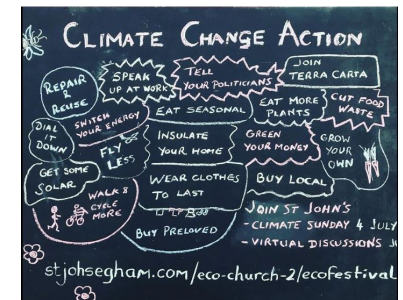 CLIMATE CHANGE ACTION
REPAIR
&
REUSE
SPEAK
UP AT WORK
TELL
YOUR POLITICIANS
JOIN
TERRA CARTA
SWITCH
YOUR ENERGY
EAT SEASONAL
EAT MORE
PLANTS
CUT FOOD
WASTE
DIAL
IT
DOWN
FLY
LESS
INSULATE
YOUR HOME
GREEN
YOUR MONEY
GROW
YOUR
OWN
GET SOME
SOLAR
WALK &
CYCLE
MORE
WEAR CLOTHES
TO LAST
BUY LOCAL
BUY PRELOVED
JOIN ST JOHN'S
- CLIMATE SUNDAY 4 JULY
- VIRTUAL DISCUSSIONS
stjohsegham.com/eco-church-2/ecofestival